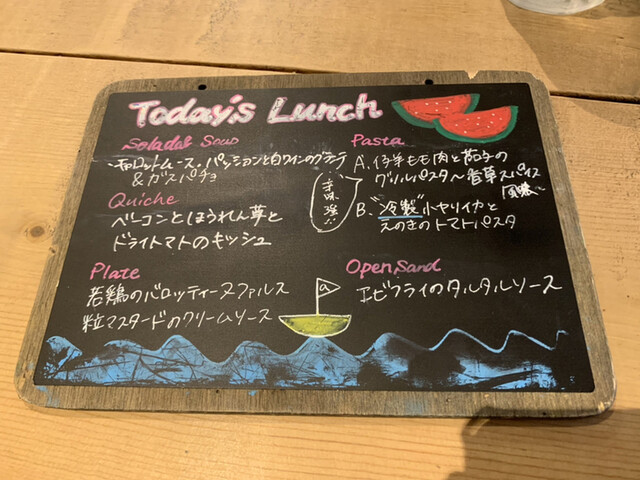 Today's Lunch
Salada& Soup
・キャロットムース・パッションと白ワインのグラニテ
&ガスパチョ
Quiche
ベーコンとほうれん草と
ドライトマトのキッシュ
Plate
若鶏のバロッティーヌファルス
粒マスタードのクリームソース
Pasta
A. 仔羊もも肉と茄子の
グリルパスタ〜香草スパイス
風味〜
B. "冷製"小ヤリイカと
えのきのトマトパスタ
Open Sand
エビフライのタルタルソース
a